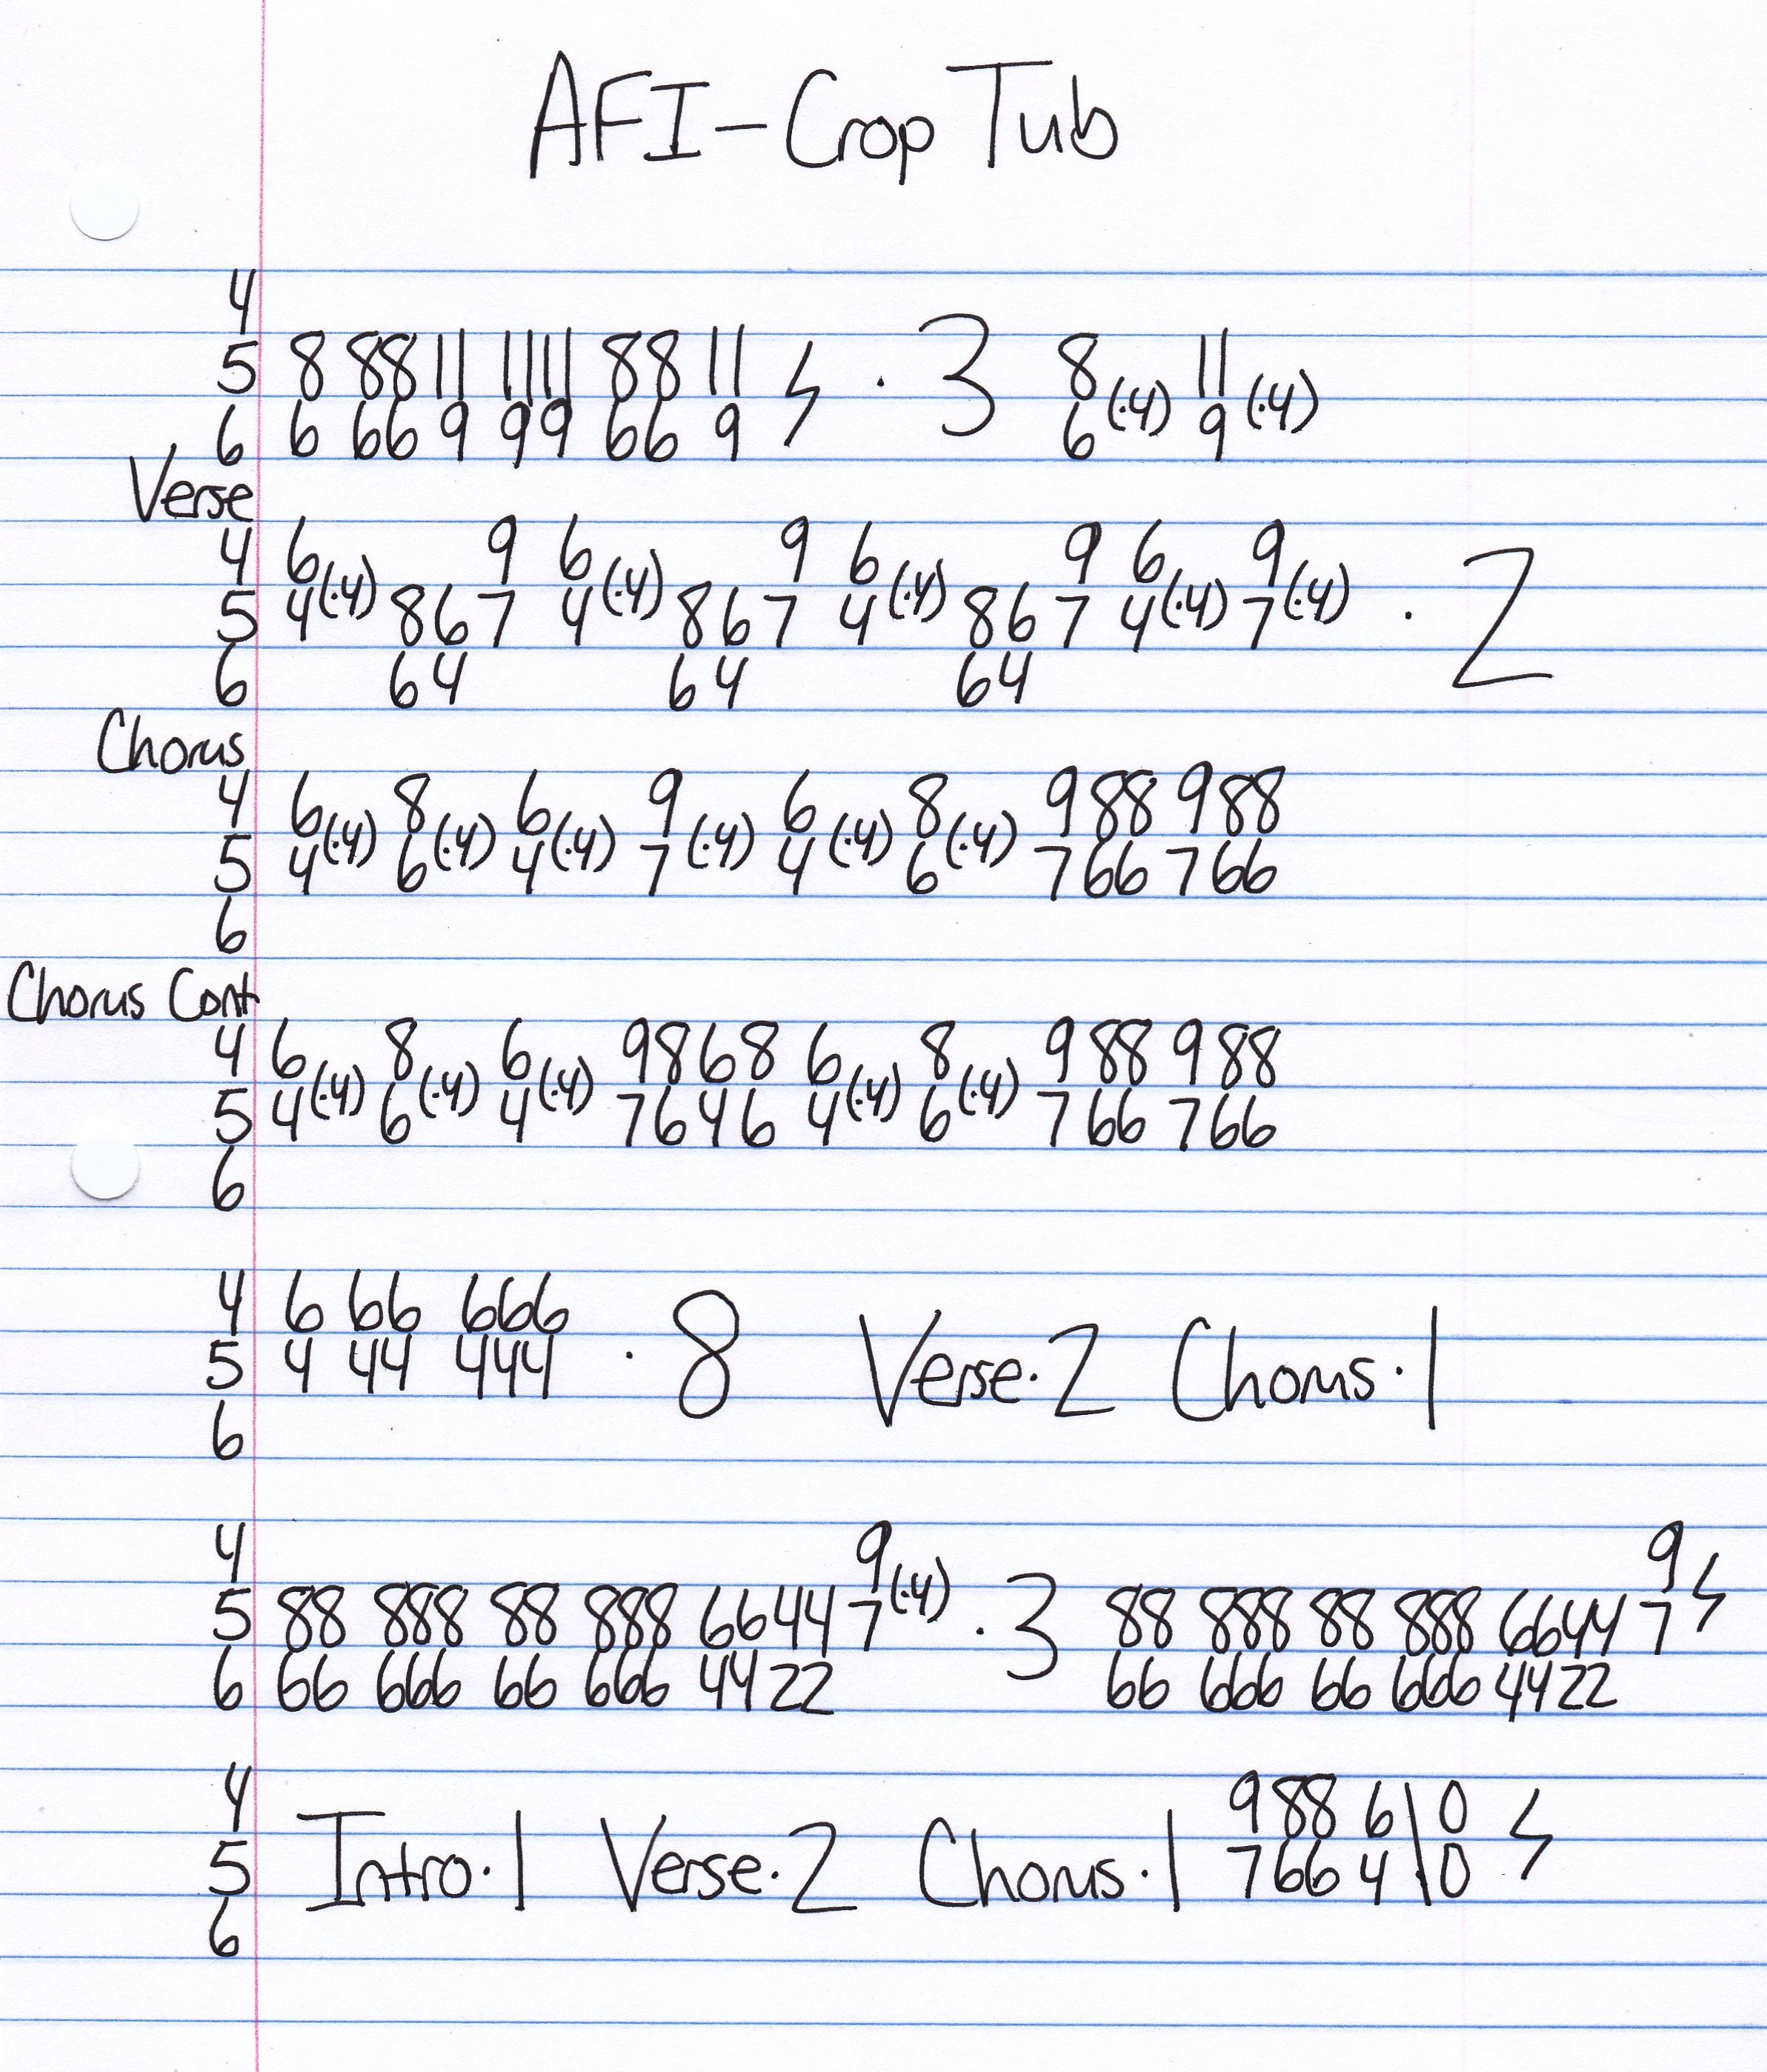 AFI - Crop Tub
4
5 8 88 11 11 11 88 11 · 3 8 (·4) 11 (·4)
6 6 66 9 99 66 9 6 9
Verse
4 6 9 6 9 6 9 6 9
5 4(·4) 86 7 4(·4) 86 7 4(·4) 86 7 4(·4) 7(·4) · 2
6 64 64 64
Chorus
4 6 8 6 9 6 8 9 88 9 88
5 4(·4) 6(·4) 4(·4) 7(·4) 4(·4) 6(·4) 7 66 7 66
6
Chorus Cont
4 6 8 6 9868 6 8 9 88 9 88
5 4(·4) 6(·4) 4(·4) 7646 4(·4) 6(·4) 7 66 7 66
6
4 6 66 666
5 4 44 444 · 8 Verse·2 Chorus·1
6
4 9 9
5 88 888 88 888 6644 7(·4) · 3 88 888 88 888 6644 7
6 66 666 66 666 4422 66 666 66 666 4422
4 9 88 6\0
5 Intro·1 Verse·2 Chorus·1 7 66 4\0
6